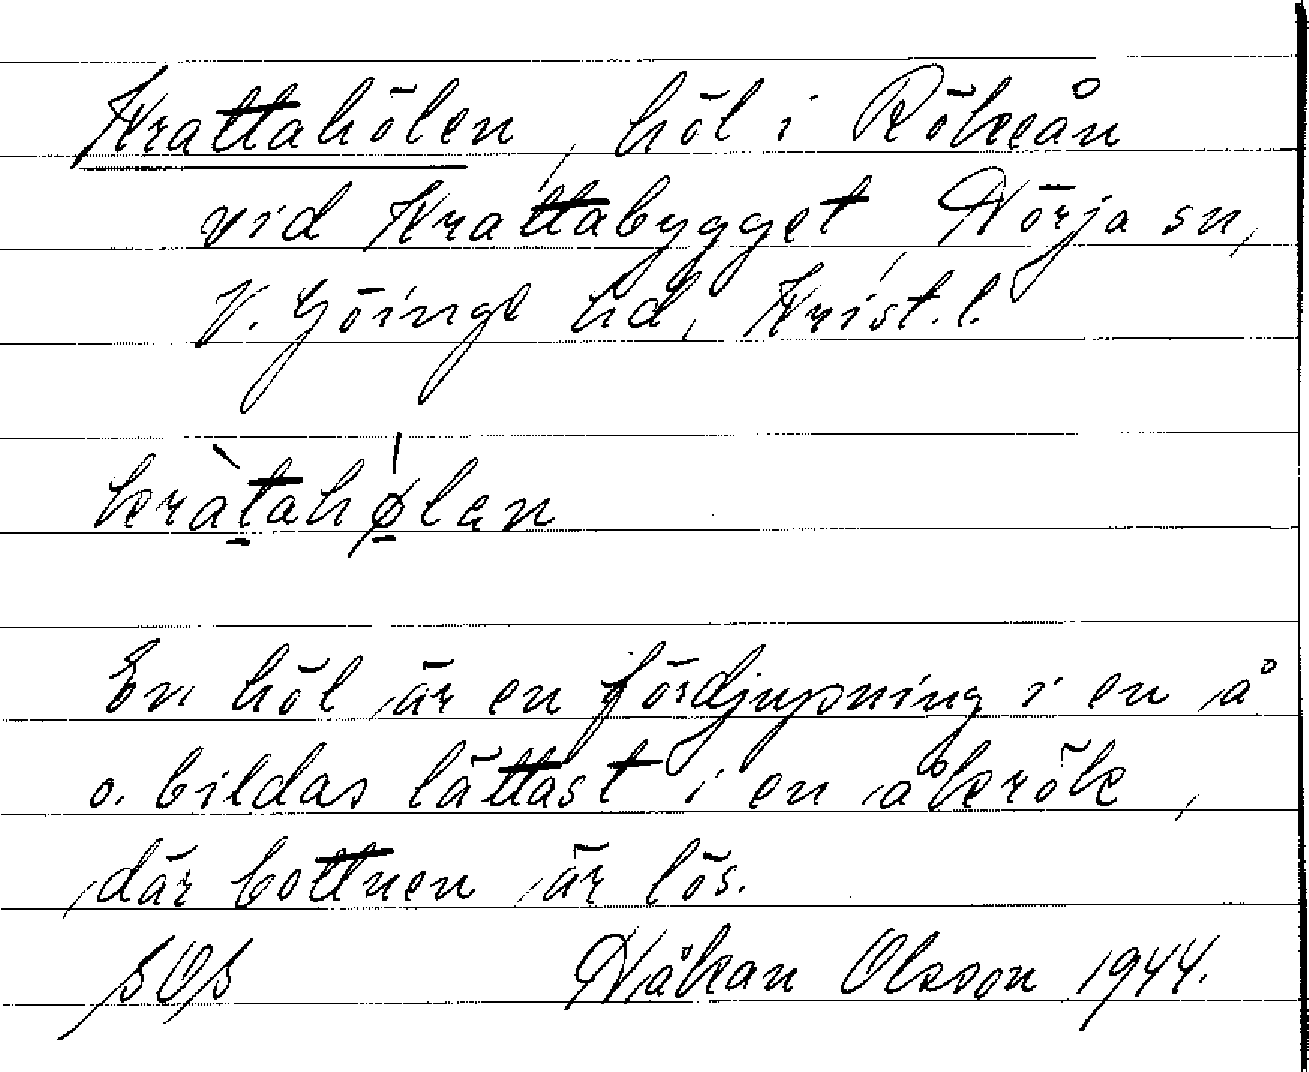 Krattahölen, höl i Rökeån
vid Krattabygget, Nörja sn,
V. Göinge hd, Krist. l.
kràtahø̀lan
En höl är en fördjupning i en å
o. bildas lättast i en åkrök,
där bottnen är lös.
SOS Håkan Olsson 1944.